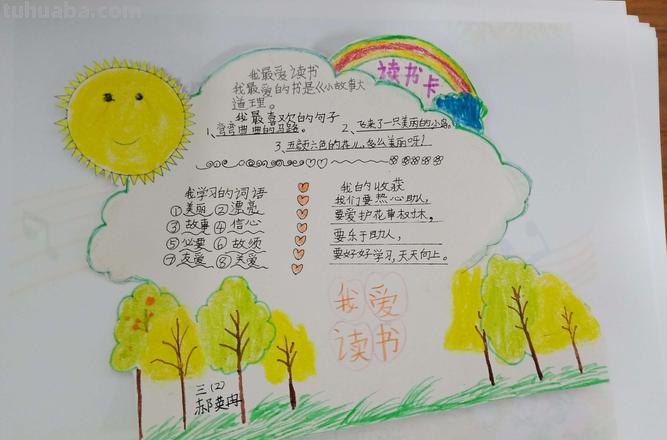 tuhuaba.com
读书卡
我最爱读书
我最爱的书是《小故事大
道理。
我最喜欢的句子
1、弯弯曲曲的马路。 2、飞来了一只美丽的小鸟。
3、五颜六色的花儿,多么美丽呀!
我学习的词语
①美丽 ②漂亮
③故事 ④信心
⑤必要 ⑥必须
⑦友爱 ⑧关爱
我的收获
我们要热心助人,
要爱护花草树木,
要乐于助人,
要好好学习,天天向上。
我爱
读书
三(2)
郝英冉